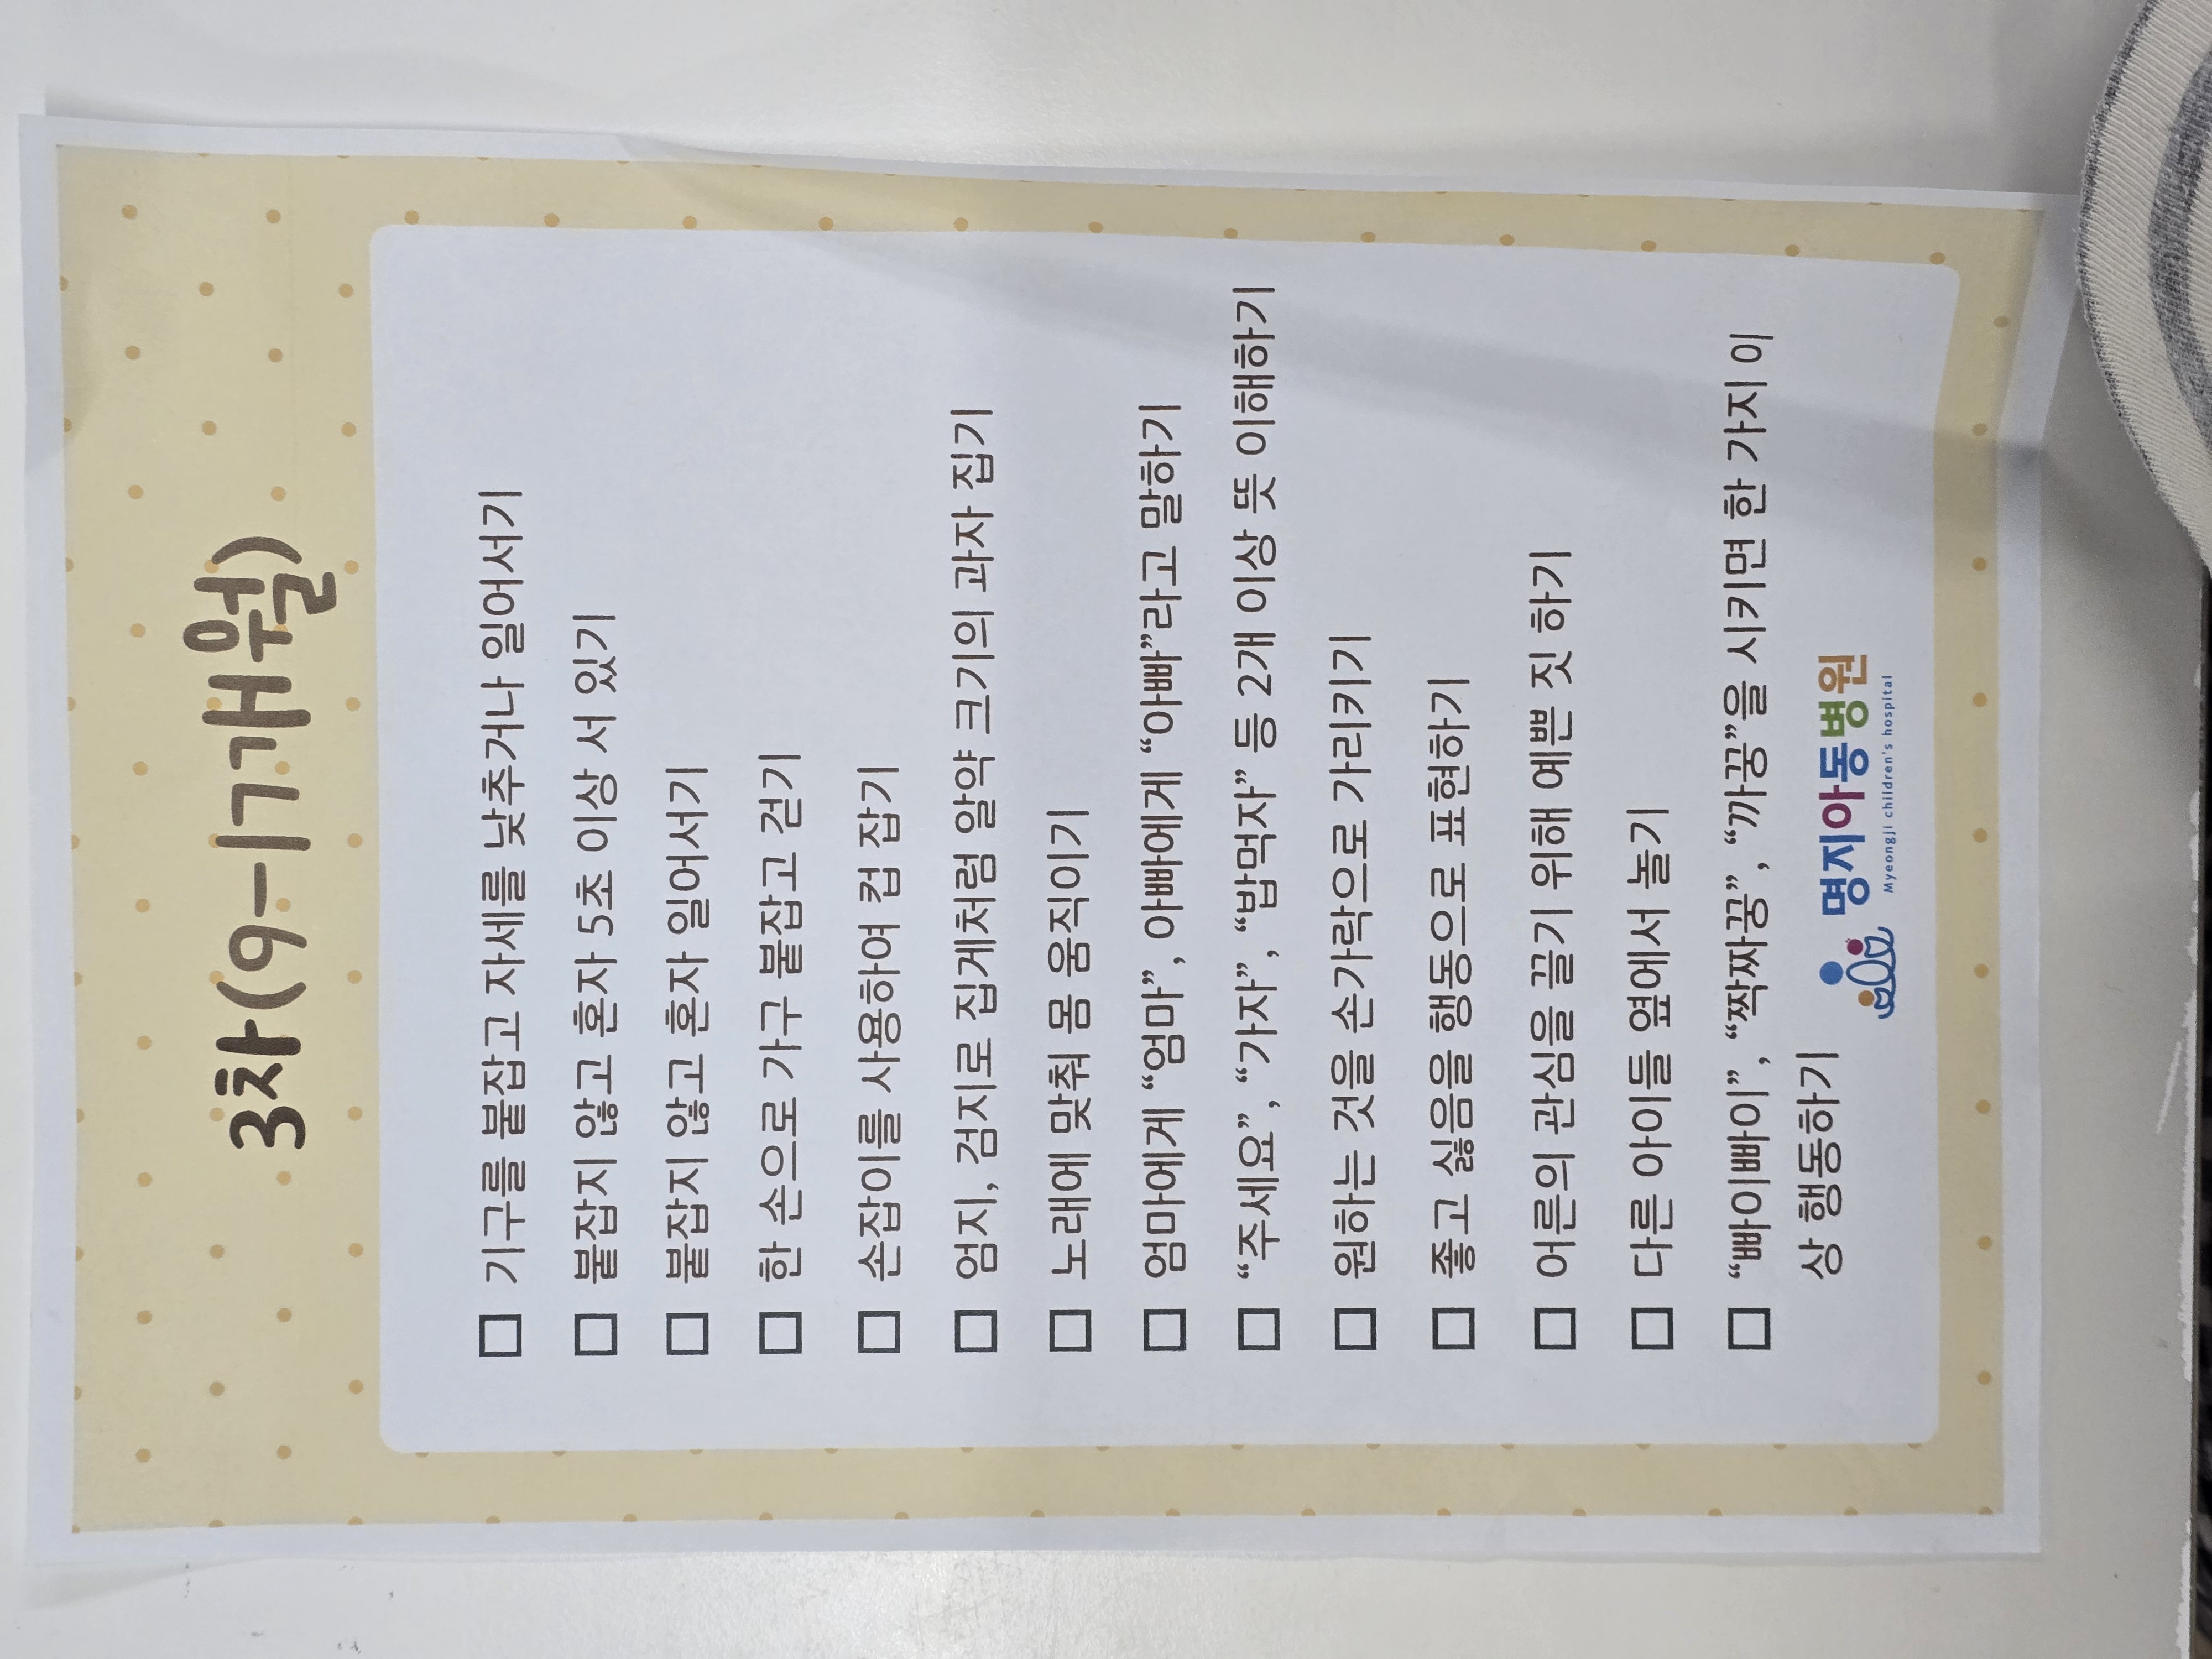 3차(9-17개월)
□ 기구를 붙잡고 자세를 낮추거나 일어서기
□ 붙잡지 않고 혼자 5초 이상 서 있기
□ 붙잡지 않고 혼자 일어서기
□ 한 손으로 가구 붙잡고 걷기
□ 손잡이를 사용하여 컵 잡기
□ 엄지, 검지로 집게처럼 알약 크기의 과자 집기
□ 노래에 맞춰 몸 움직이기
□ 엄마에게 “엄마”, 아빠에게 “아빠”라고 말하기
□ “주세요”, “가자”, “밥먹자” 등 2개 이상 뜻 이해하기
□ 원하는 것을 손가락으로 가리키기
□ 좋고 싫음을 행동으로 표현하기
□ 어른의 관심을 끌기 위해 예쁜 짓 하기
□ 다른 아이들 옆에서 놀기
□ “빠이빠이”, “짝짜꿍”, “까꿍”을 시키면 한 가지 이
상 행동하기
명지아동병원
Myeongji children's hospital